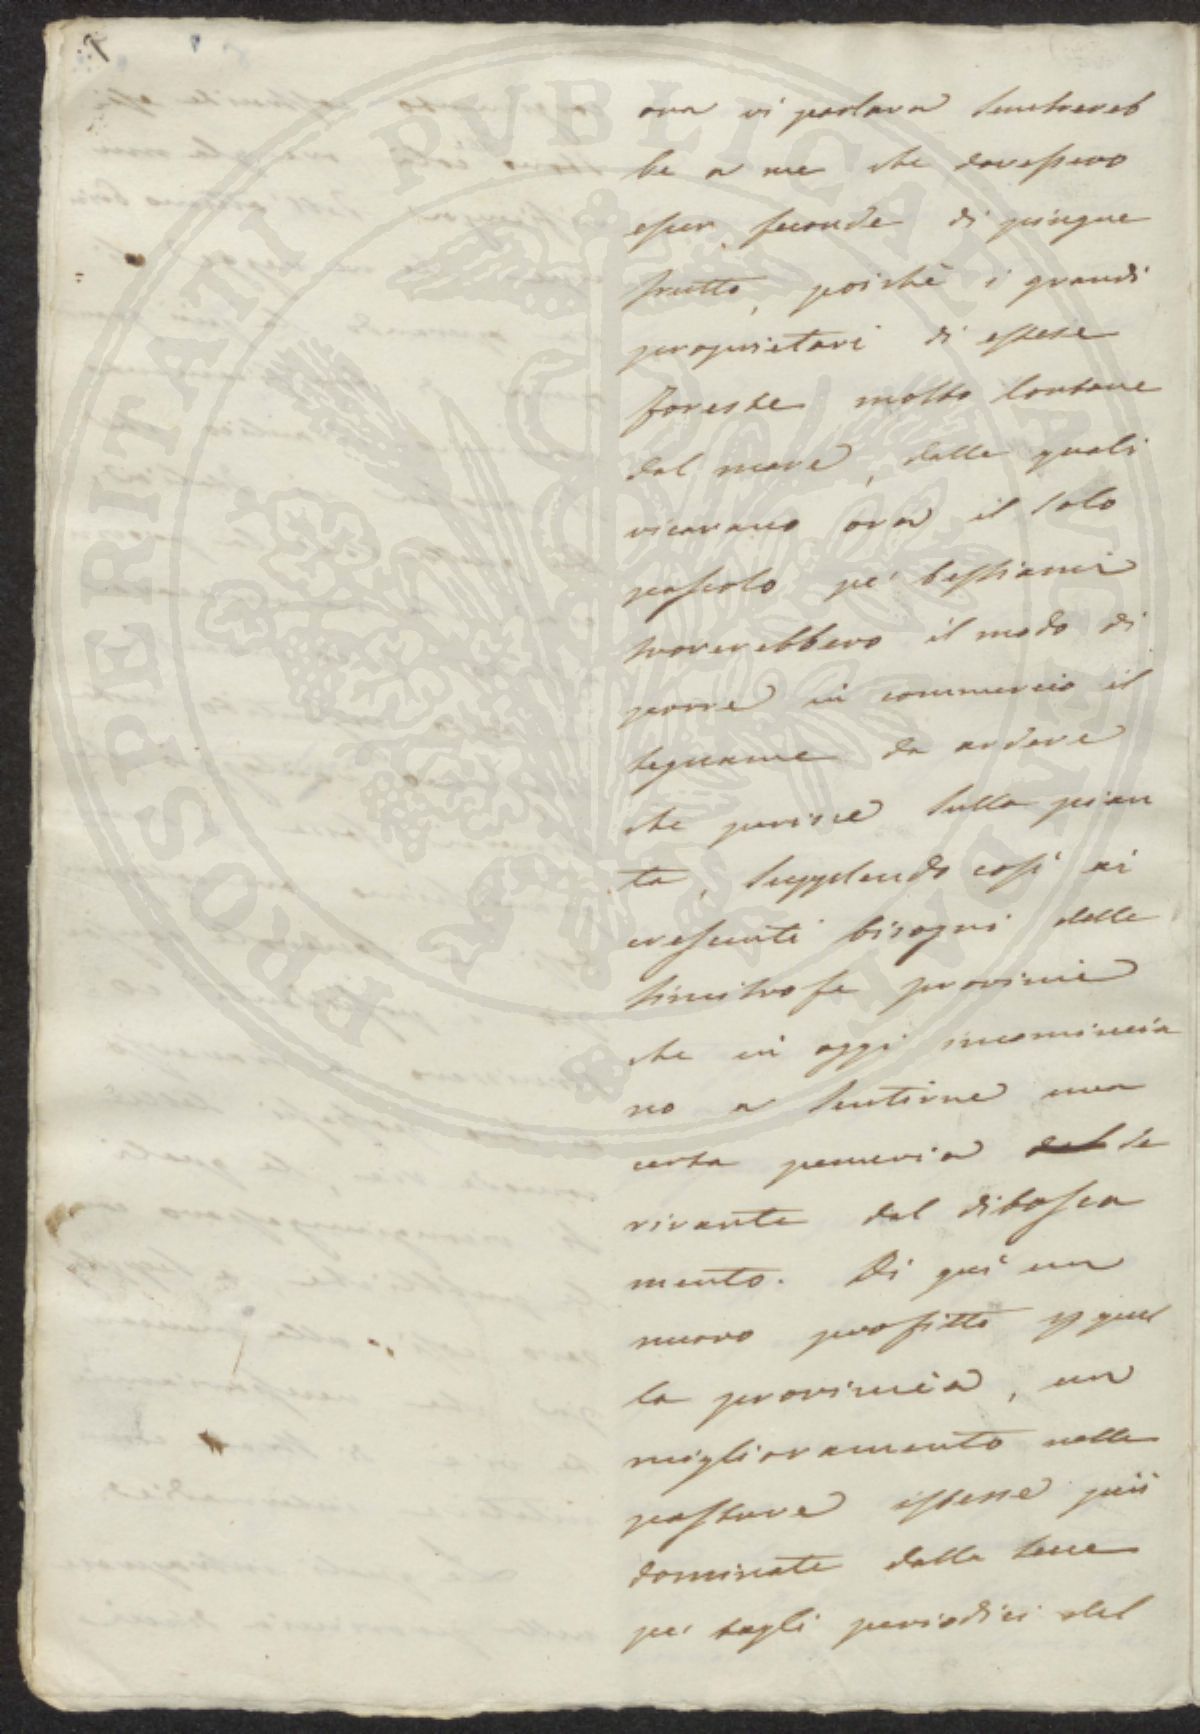 ora vi parlava sembrereb
be a me che dovessero
esser feconde di pingue
frutto, poichè i grandi
proprietari di estese
foreste molto lontane
dal mare, dalle quali
ricavano ora il solo
pascolo pe' bestiami
troverebbero il modo di
porre in commercio il
legname da ardere
che perisce sulla pian
ta, supplendo così ai
crescenti bisogni delle
limitrofe provincie
che in oggi incomincia
no a sentirne una
certa penuria de
rivante dal disbosca
mento. Di quì un
nuovo profitto quel
la provincia, un
miglioramento nelle
pasture istesse più
dominate dalla luce
pei tagli periodici del
PROSPERITATI PVBLICAE AVGENDAE